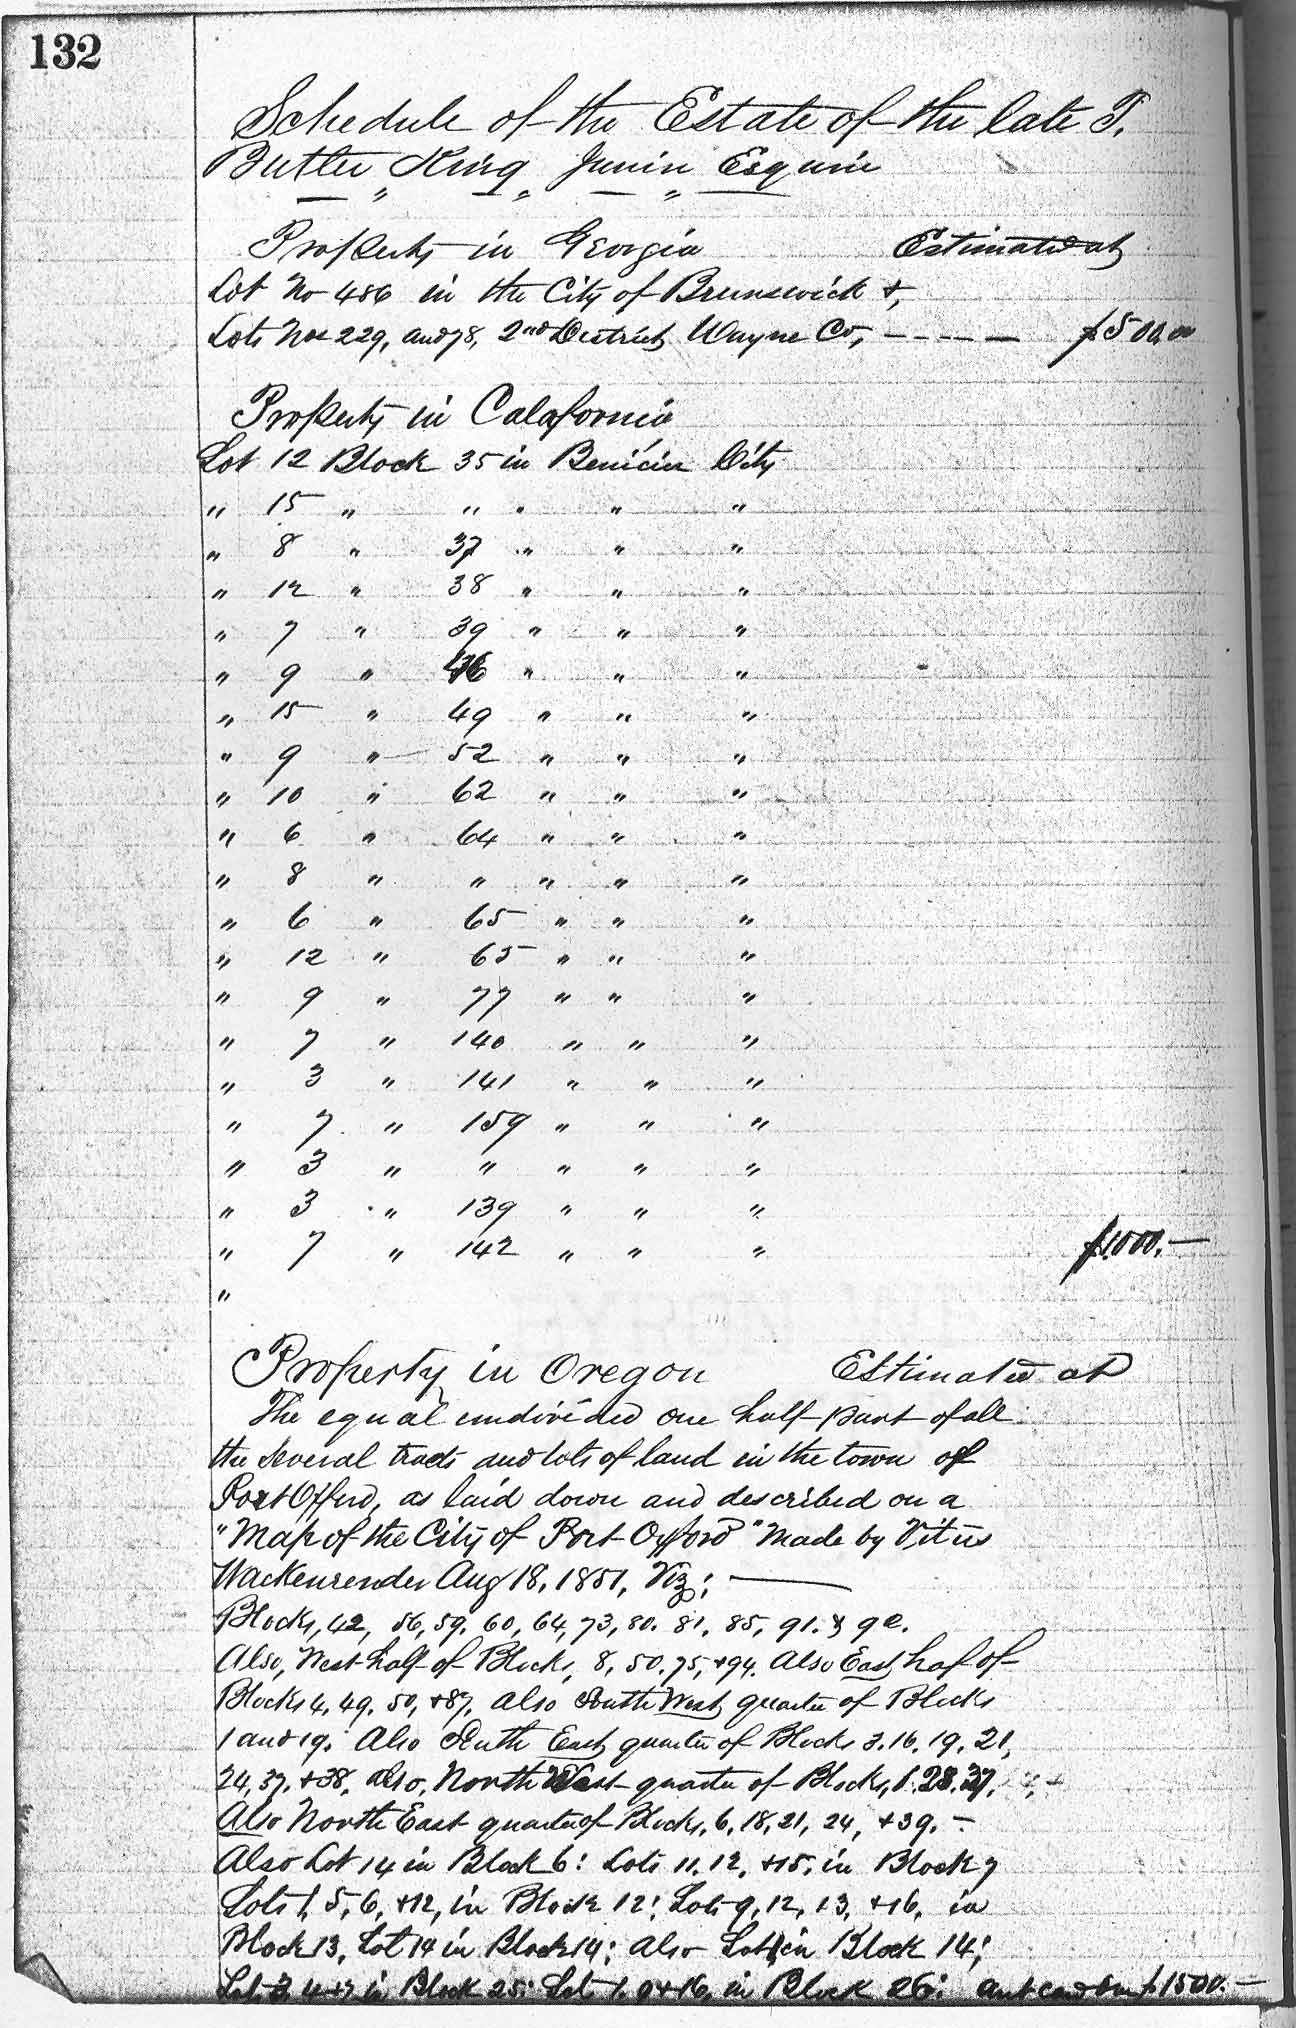 132
Schedule of the Estate of the late T.
Butler King Junior Esquire
Property in Georgia Estimated at
Lot No 486 in the City of Brunswick &,
Lots Nos 229, and 78, 2nd District Wayne Co, - - - - - $500.00
Property in Calafornia
Lot 12 Block 35 in Benicia City
" 15 " " " " "
" 8 " 37 " " "
" 12 " 38 " " "
" 7 " 39 " " "
" 9 " " " "
" 15 " 49 " " "
" 9 " 52 " " "
" 10 " 62 " " "
" 6 " 64 " " "
" 8 " " " " "
" 6 " 65 " " "
" 12 " 65 " " "
" 9 " 77 " " "
" 7 " 140 " " "
" 3 " 141 " " "
" 7 " 159 " " "
" 3 " " " " "
" 3 " 139 " " "
" 7 " 142 " " " $1000.—
"
Property in Oregon Estimated at
The equal undivided one half part of all
the several tracts and lots of land in the town of
Port Offord, as laid down and described on a
"Map of the City of Port Oxford" Made by Vitus
Wackenreuder Aug 18, 1851, Viz; —
Blocks, 42, 56, 59, 60, 64, 73, 80. 81, 85, 91. &
Also, West half of Blocks, 8, 50. 75, +94. Also East haf of
Blocks 4, 49, 50, +87, also South West quarter of Blocks
1 and 19. Also South East quarter of Blocks 3. 16. 19. 21,
24, 37, +38. also, North West quarter of Blocks, 28. 37.
Also North East quarter of Blocks, 6, 18, 21, 24, +39. —
Also Lot 14 in Block 6: Lots 11. 12, +15, in Block 7
Lots 1, 5, 6, +12, in Block 12; Lots 9, 12, 13, +16, in
Block 13, Lot 14 in Block 14; also Lot in Block 14;
in Block 25; Lots +16, in Block 26; $1500.—